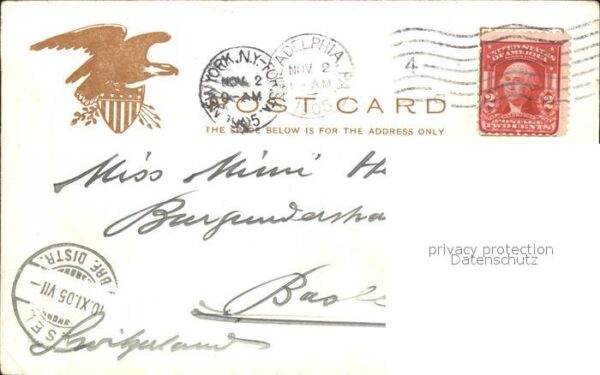 NEW YORK, N.Y.-FOR
NOV 2
9-AM
1905
ADELPHIA, PA.
NOV 2
AM
05
4
UNITED STATES
OF AMERICA
2 2
POSTAGE
TWO CENTS
POST CARD
THE SPACE BELOW IS FOR THE ADDRESS ONLY
Miss Mimi H
Burgundersha
privacy protection
Datenschutz
SEL
BRF. DISTR.
10.XI.05 VII-
Basl
Switzerland